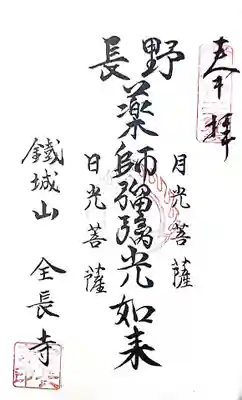 奉拝
長野
月光菩薩
薬師瑠璃光如来
日光菩薩
鐵城山 全長寺